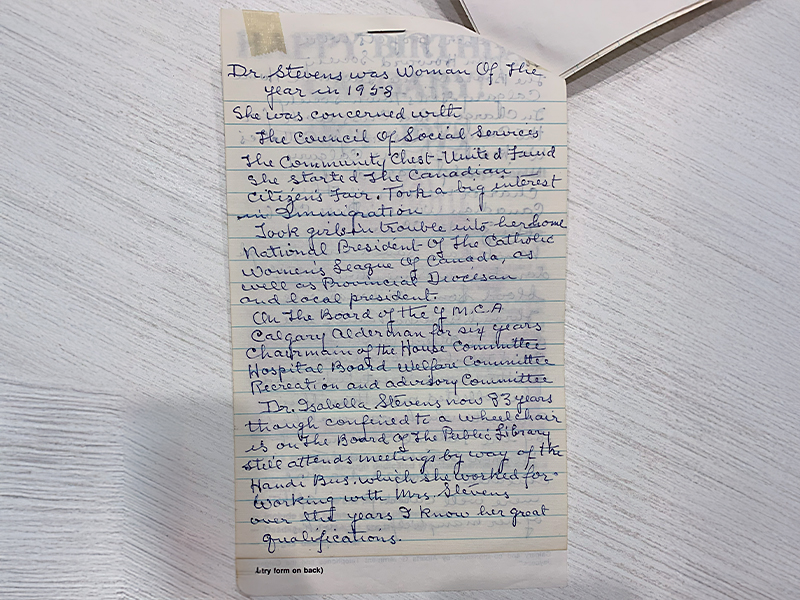 Dr. Stevens was Woman Of The
year in 1958
She was concerned with
The Council Of Social Services
The Community Chest-United Fund
She started The Canadian
Citizen's Fair. Took a big interest
in Immigration
Took girls in trouble into her home
National President Of The Catholic
Women's League Of Canada, as
well as Provincial Diocesan
and local president.
On The Board of the Y M.C.A
Calgary Alderman for six years
Chairmain of the House Committee
Hospital Board Welfare Committee
Recreation and advisory Committee
Dr. Isabella Stevens now 83 years
though confined to a wheelchair
is on The Board Of The Public Library
still attends meetings by way of the
Handi Bus. which she worked for.
Working with Mrs. Stevens
over the years I know her great
qualifications.
try form on back)